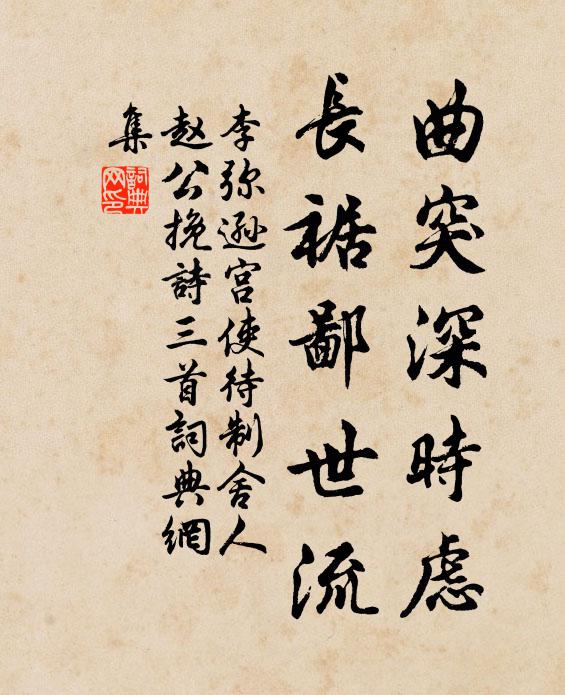 曲突深時慮
長裾鄙世流
李弥遜宫使待制舍人
赵公挽詩三首詞典網
集
詞典
网印